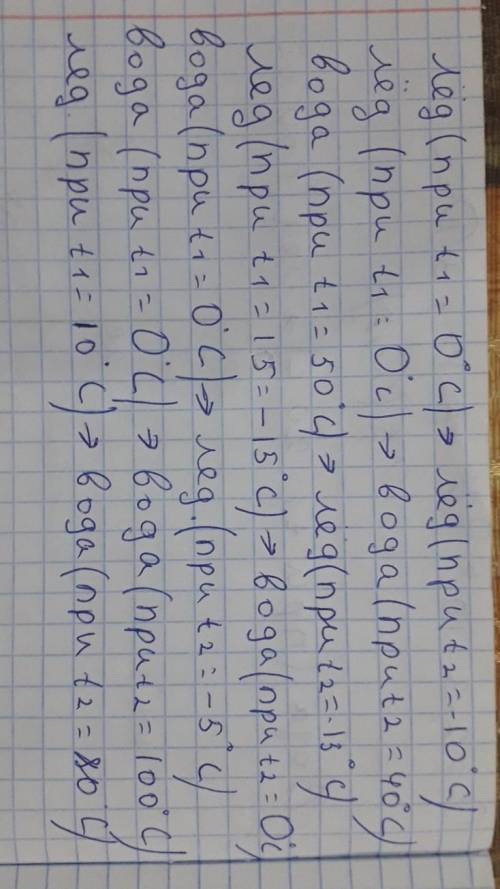 лёд (при t1 = 0°C) → лёд (при t2 = -10°C)
лёд (при t1 = 0°C) → вода (при t2 = 40°C)
вода (при t1 = 50°C) → лёд (при t2 = -13°C)
лед (при t1 = 15 = -15°C) → вода (при t2 = 0°C
вода (при t1 = 0°C) → лед. (при t2 = -5°C)
вода (при t1 = 0°C) → вода (при t2 = 100°C)
лед. (при t1 = 10°C) → вода (при t2 = 80°C)